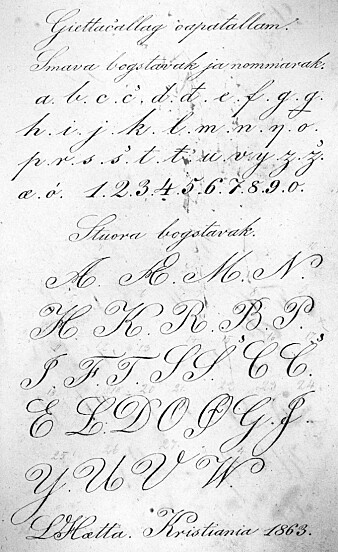 Giettačallag oapatallam.
Smava bogstavak ja nommarak.
a. b. c. č. d. đ. e. f. g. ǥ.
h. i. j. k. l. m. n. ŋ. o.
p. r. s. š. t. ŧ. u. v. y. z. ž.
æ. ó. 1. 2. 3. 4. 5. 6. 7. 8. 9. 0.
Stuora bogstavak.
A. Æ. M. N.
H. K. R. B. P.
I. F. T. S Š C Č.
E L. D O Ø G. J.
Y. U V W.
L Hætta. Kristiania 1863.